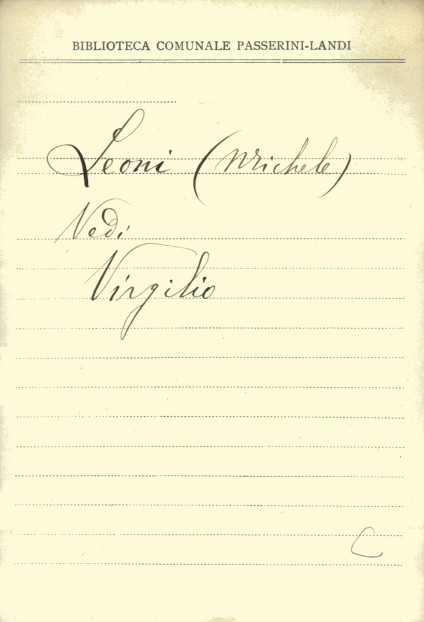 BIBLIOTECA COMUNALE PASSERINI-LANDI
Leoni (Michele)
Vedi
Virgilio
C